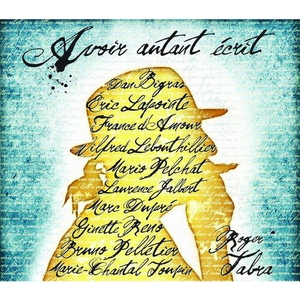 Avoir autant écrit
Dan Bigras
Éric Lapointe
France d'Amour
Wilfred Lebouthillier
Mario Pelchat
Laurence Jalbert
Marc Dupré
Ginette Reno
Bruno Pelletier
Marie-Chantal Toupin
Roger
Tabra